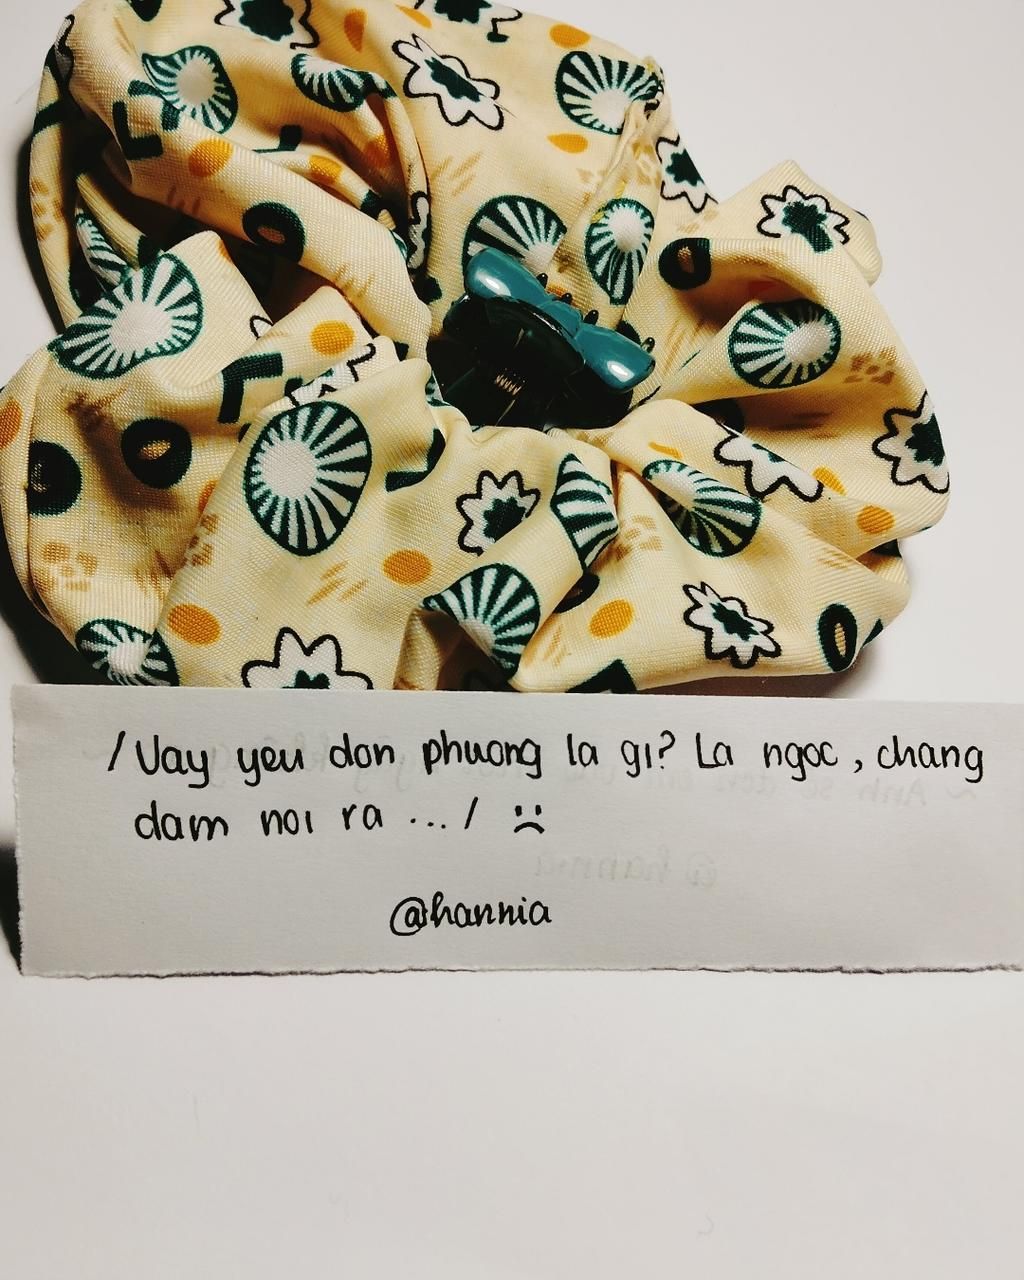 /Vay yeu don phuong la gi? La ngoc, chang
dam noi ra .../ :(
@hannia